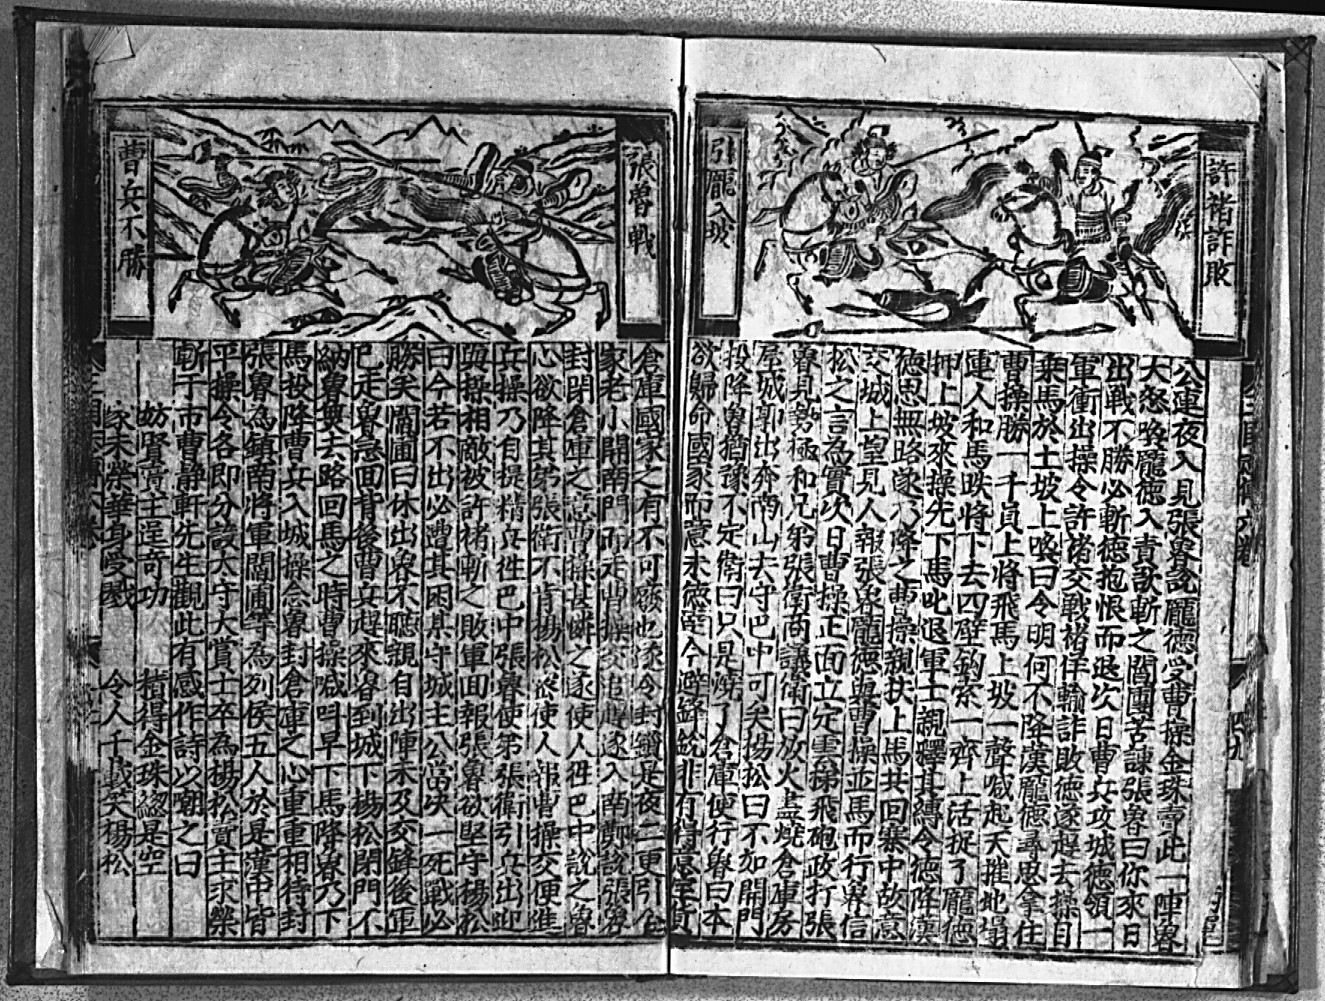 許褚詐敗
引龐入坡
公連夜入見張魯說龐德受曹操金珠賣此一陣魯
大怒喚龐德入責欲斬之閻圃苦諫張魯曰你來日
出戰不勝必斬德抱恨而退次日曹兵攻城德領一
軍衝出操令許褚交戰褚佯輸詐敗德遂趕去操自
乘馬於土坡上喚曰令明何不降漢龐德尋思拿住
曹操勝一千員上將飛馬上坡一聲喊起天摧地塌
連人和馬跌將下去四壁鈎索一齊上活捉了龐德
押上坡來操先下馬叱退軍士親釋其縛令德降漢
德思無路遂乃降之曹操親扶上馬共回寨中故意
交城上望見人報張魯龐德與曹操並馬而行魯信
松之言為實次日曹操正面立定雲梯飛砲攻打張
魯見勢極和兄弟張衛商議衛曰放火盡燒倉庫房
屋城郭出奔南山去守巴中可矣楊松曰不如開門
投降魯猶豫不定衛曰只是燒了倉庫便行魯曰本
欲歸命國家而意未得達今避鋒銳非有得意室貨
張魯戰
曹兵不勝
倉庫國家之有不可廢也遂令封鎖是夜二更引全
家老小開南門而走曹操交追趕遂入南鄭說張魯
封閉倉庫之意曹操甚憐之遂使人徃巴中說之魯
心欲降其弟張衛不肯楊松密使人報曹操交便進
兵操乃自提精兵徃巴中張魯使弟張衛引兵出迎
與操相敵被許褚斬之敗軍回報張魯欲堅守楊松
曰今若不出必遭其困某守城主公當决一死戰必
勝矣閻圃曰休出魯不聽親自出陣未及交鋒後軍
已走魯急回背後曹兵趕來魯到城下楊松閉門不
納魯無去路回馬之時曹操喊叫早下馬降魯乃下
馬投降曹兵入城操念魯封倉庫之心重重相待封
張魯為鎮南將軍閻圃等為列侯五人於是漢中皆
平操令各郡分設太守大賞士卒為楊松賣主求榮
斬于市曹靜軒先生觀此有感作詩以嘲之曰
妨賢賣主逞奇功 積得金珠總是空
家未榮華身受戮 令人千載笑楊松